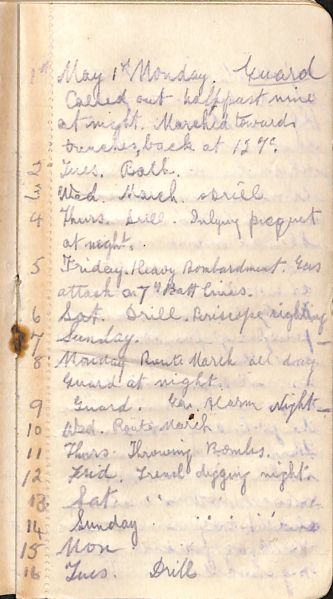 1st May 1st Monday. Guard
Called out half past nine
at night. Marched towards
trenches, back at 12
2 Tues. Bath.
3 Wed. March. Drill
4 Thurs. Drill. Inlying picquet
at night.
5 Friday. Heavy Bombardment. Gas
attack on 7th Batt lines.
6 Sat. Drill. Periscope
7 Sunday. —
8 Monday Route March all day
Guard at night.
9 Guard. Gas Alarm Night —
10 Wed. Route March
11 Thurs. Throwing Bombs.
12 Frid. Trench digging night.
13 Sat. " " "
14 Sunday " " "
15 Mon
16 Tues. Drill